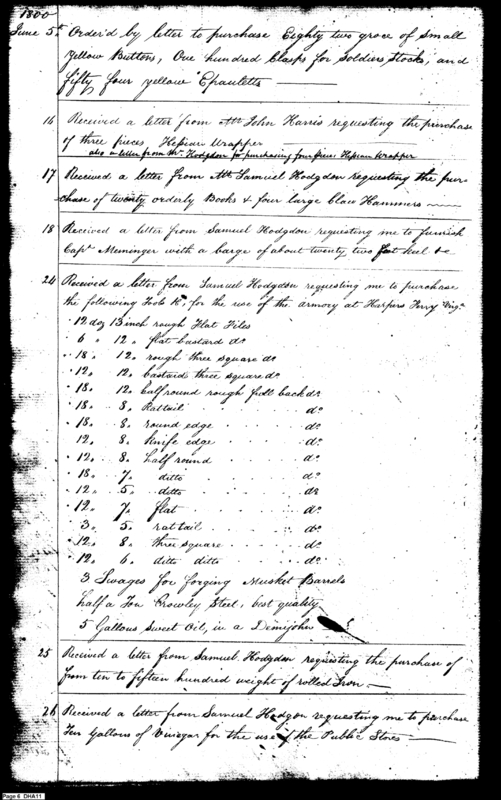 1800
June 5th Order'd by letter to purchase Eighty two groce of small
Yellow Buttons, One hundred Clasps for Soldiers Stocks, and
fifty four yellow Epauletts
16 Received a letter from Mr John Harris requesting the purchase
of three pieces Hessian Wrapper
also a letter from Mr. Hodgdon for purchasing four pieces Hessian Wrapper
17 Received a letter from Mr Samuel Hodgdon requesting the pur-
chase of twenty orderly Books & four large Claw Hammers
18 Received a letter from Samuel Hodgdon requesting me to furnish
Capt Meminger with a barge of about twenty two feet keel &c
24 Received a letter from Samuel Hodgdon requesting me to purchase
the following Tools &c for the use of the armory at Harpers Ferry Virga
12 doz 13 inch rough Flat Files
6 " 12 " flat bastard do
18 " 12 " rough three square do
12 " 12 " bastard three square do
18 " 12 " half round rough full back do
18 " 8 " Rattail do
18 " 8 " round edge do
12 8 " Knife edge do
12 " 8 " half round do
18 " 7 " ditto do
12 " 5 " ditto do
12 " 7 " flat do
3 " 5 " rat tail do
12 " 8 " three square do
12 " 6 " ditto ditto do
3 Swages for forging Musket Barrels
half a Ton Crowley Steel, best quality
5 Gallons Sweet Oil, in a Demijohn
25 Received a letter from Samuel Hodgdon requesting the purchase of
from ten to fifteen hundred weight of rolled Iron
26 Received a letter from Samuel Hodgon requesting me to purchase
Ten Gallons of Vinegar for the use of the Public Stores
Page 6 DHA11